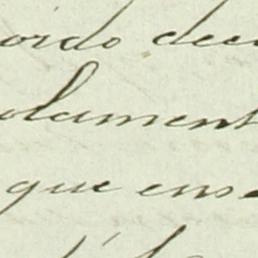 oido dec
olament
que ens